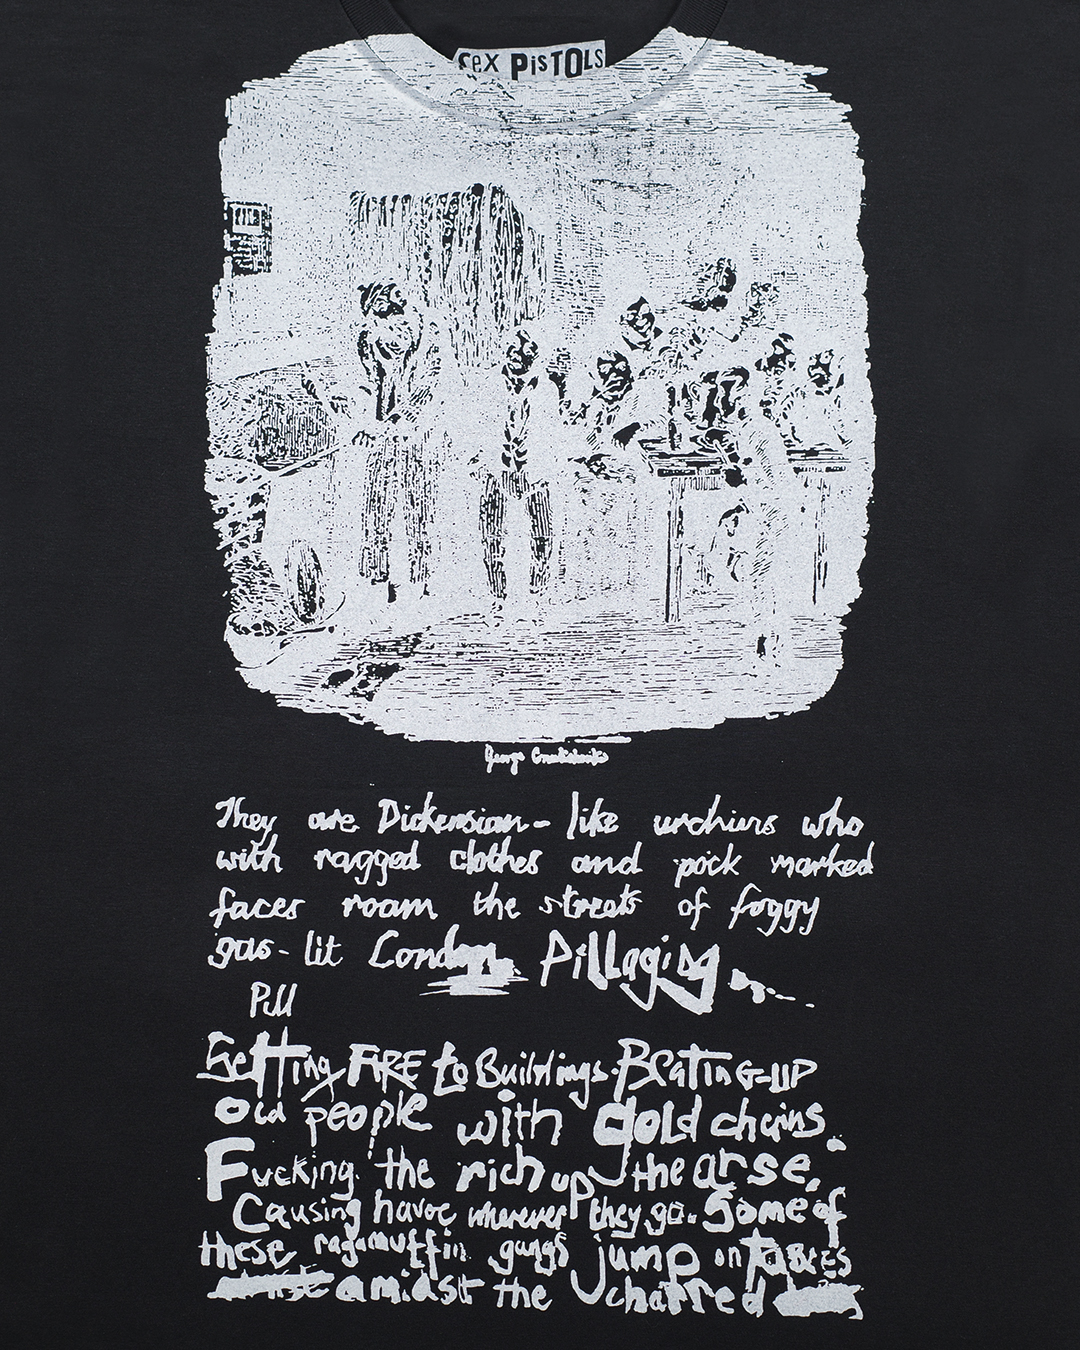 SEX PiSTOLS
George Cruikshank
They are Dickensian - like urchins who
with ragged clothes and pock marked
faces roam the streets of foggy
gas-lit London Pillaging....
Pill
Setting FIRE to Buildings. BEating-UP
Old people with gold chains.
Fucking the rich up the arse,
Causing havoc wherever they go. Some of
these ragamuffin gangs jump on tables
amidst the charred